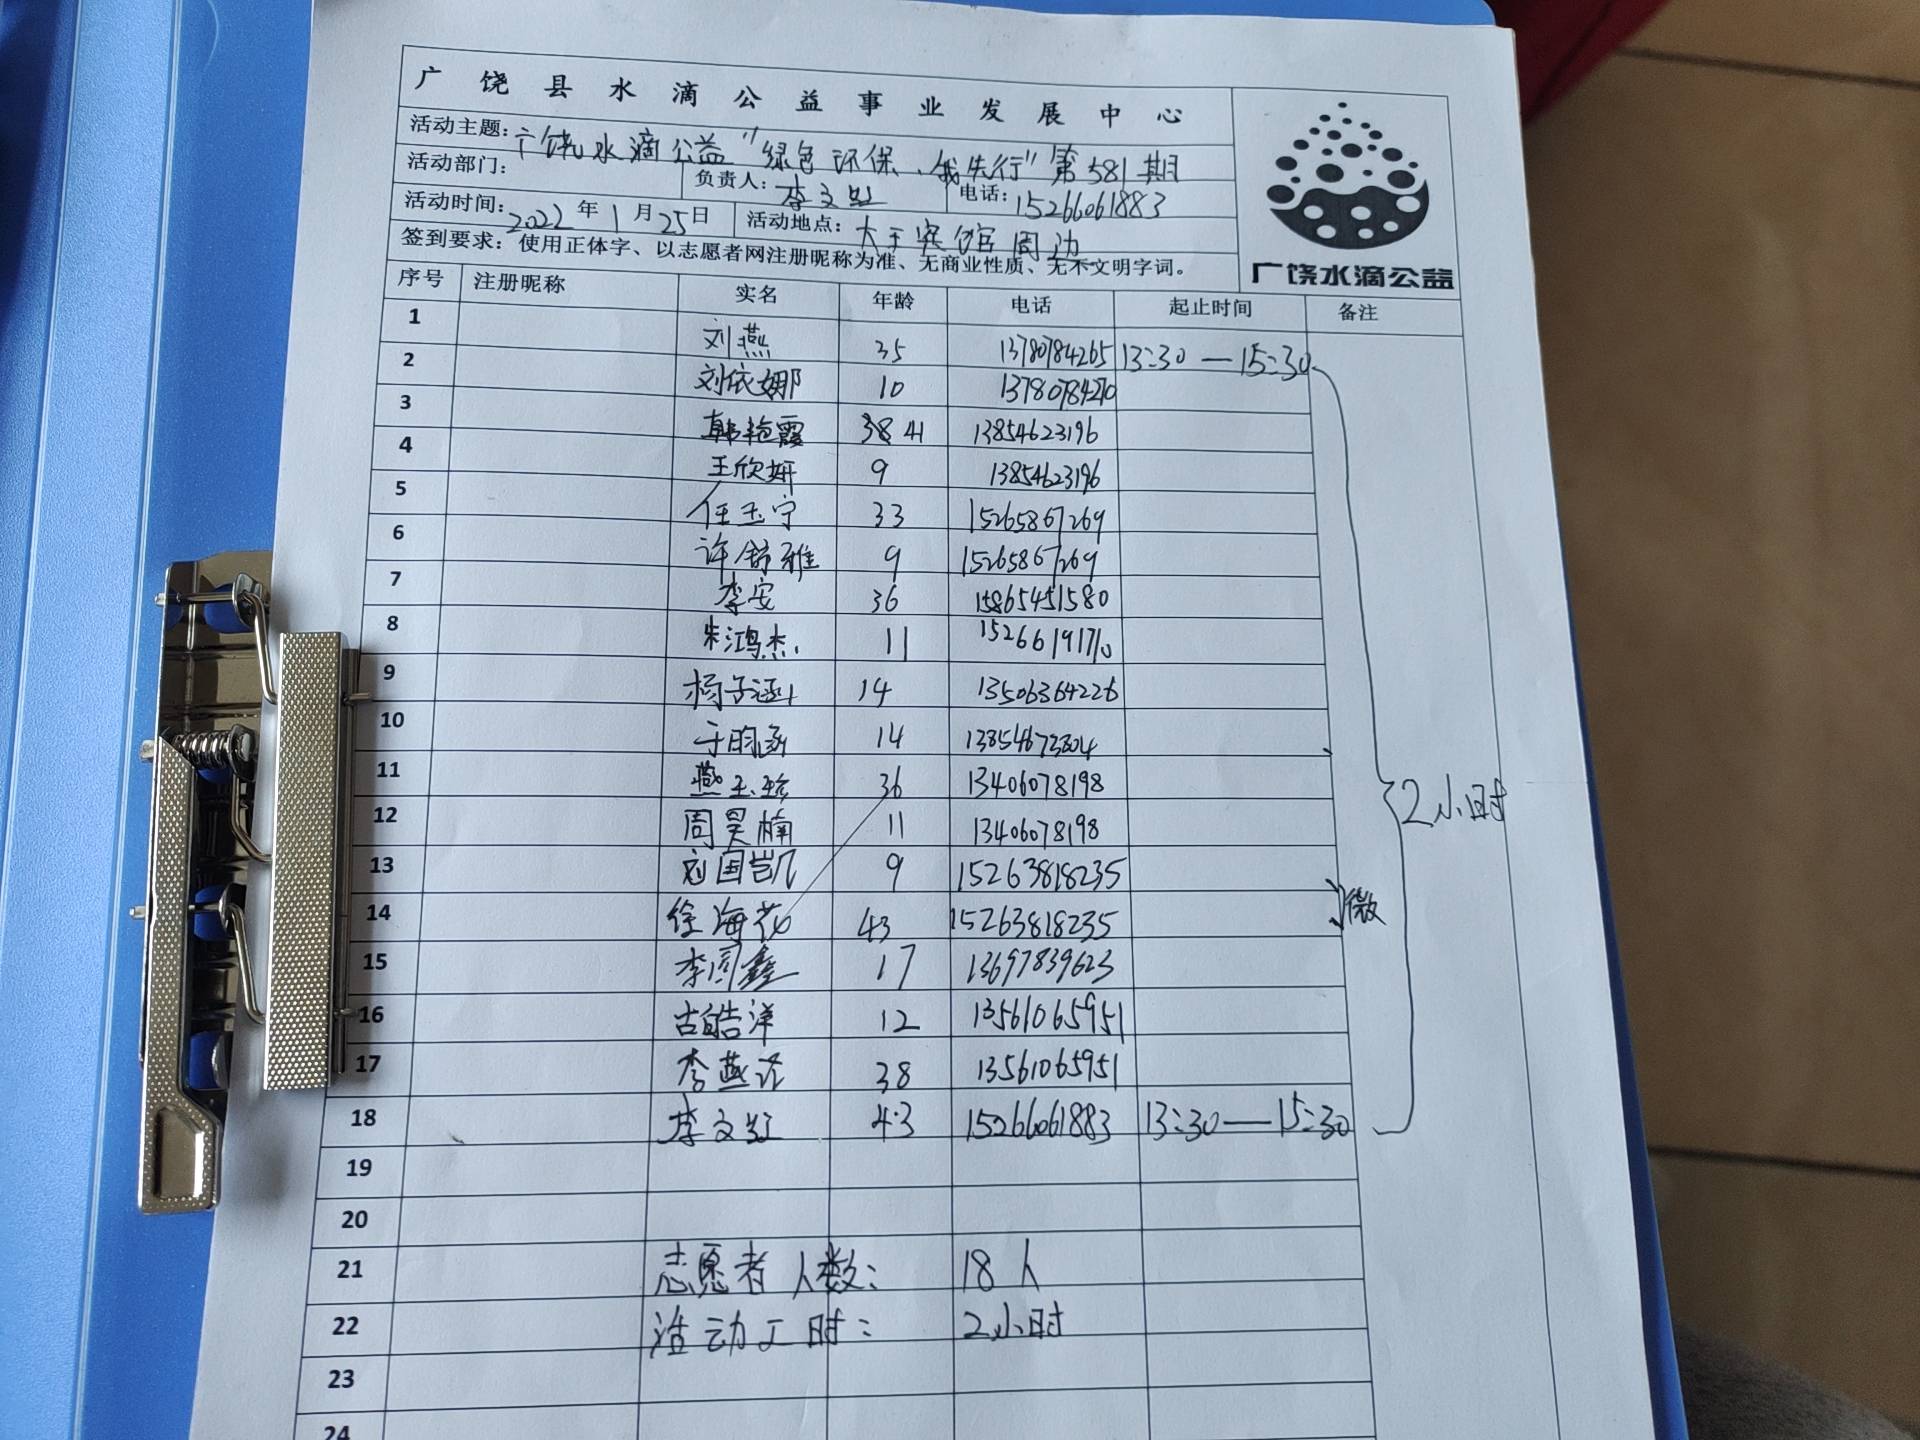 广饶县水滴公益事业发展中心
活动主题：广饶水滴公益"绿色环保、我先行"第581期
活动部门： 负责人：李文虹 电话：15266061883
活动时间：2022年1月25日 活动地点：大王宾馆周边
签到要求：使用正体字、以志愿者网注册昵称为准、无商业性质、无不文明字词。
广饶水滴公益
序号 注册昵称 实名 年龄 电话 起止时间 备注
1 刘燕 35 13780784265 13:30—15:30
2 刘依娜 10 13780784270
3 韩艳霞 38 41 13854623196
4 王欣妍 9 13854623196
5 任玉宁 33 15265867269
6 许舒雅 9 15265867269
7 李安 36 15865451580
8 朱鸿杰 11 15266191710
9 杨子涵 14 13506364226
10 于昀涵 14 13854673804
11 燕玉珍 36 13406078198
2小时
12 周昊楠 11 13406078198
13 刘国凯 9 15263818235
微
14 徐海花 43 15263818235
15 李同鑫 17 13697839623
16 古皓洋 12 13561065951
17 李燕 38 13561065951
18 李文虹 43 15266061883 13:30—15:30
19
20
21 志愿者人数： 18人
22 活动工时： 2小时
23
24